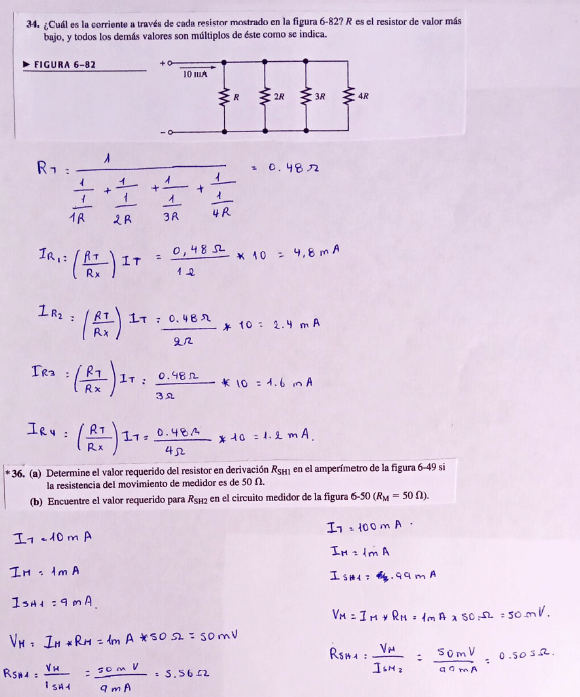 34. ¿Cuál es la corriente a través de cada resistor mostrado en la figura 6-82? R es el resistor de valor más
bajo, y todos los demás valores son múltiplos de éste como se indica.
▶ FIGURA 6–82
+
10 mA
R
2R
3R
4R
–
RT = 1 / (1/(1/1R) + 1/(1/2R) + 1/(1/3R) + 1/(1/4R)) = 0.48 Ω
IR1 = (RT/RX) IT = 0,48 Ω / 1Ω * 10 = 4,8 mA
IR2 = (RT/RX) IT = 0.48 Ω / 2Ω * 10 = 2.4 mA
IR3 = (RT/RX) IT = 0.48 Ω / 3Ω * 10 = 1.6 mA
IR4 = (RT/RX) IT = 0.48 Ω / 4Ω * 10 = 1.2 mA.
*36. (a) Determine el valor requerido del resistor en derivación RSH1 en el amperímetro de la figura 6-49 si
la resistencia del movimiento de medidor es de 50 Ω.
(b) Encuentre el valor requerido para RSH2 en el circuito medidor de la figura 6-50 (RM = 50 Ω).
IT = 10 mA
IM = 1mA
ISH1 = 9 mA.
VM = IM * RM = 1m A * 50 Ω = 50 mV
RSH1 = VM / ISH1 = 50 mV / 9 mA = 5.56 Ω
IT = 100 mA.
IM = 1mA
ISH1 = .99 mA
VM = IM * RM = 1m A x 50 Ω = 50 mV.
RSH1 = VM / ISH2 = 50 mV / 99 mA = 0.505 Ω.